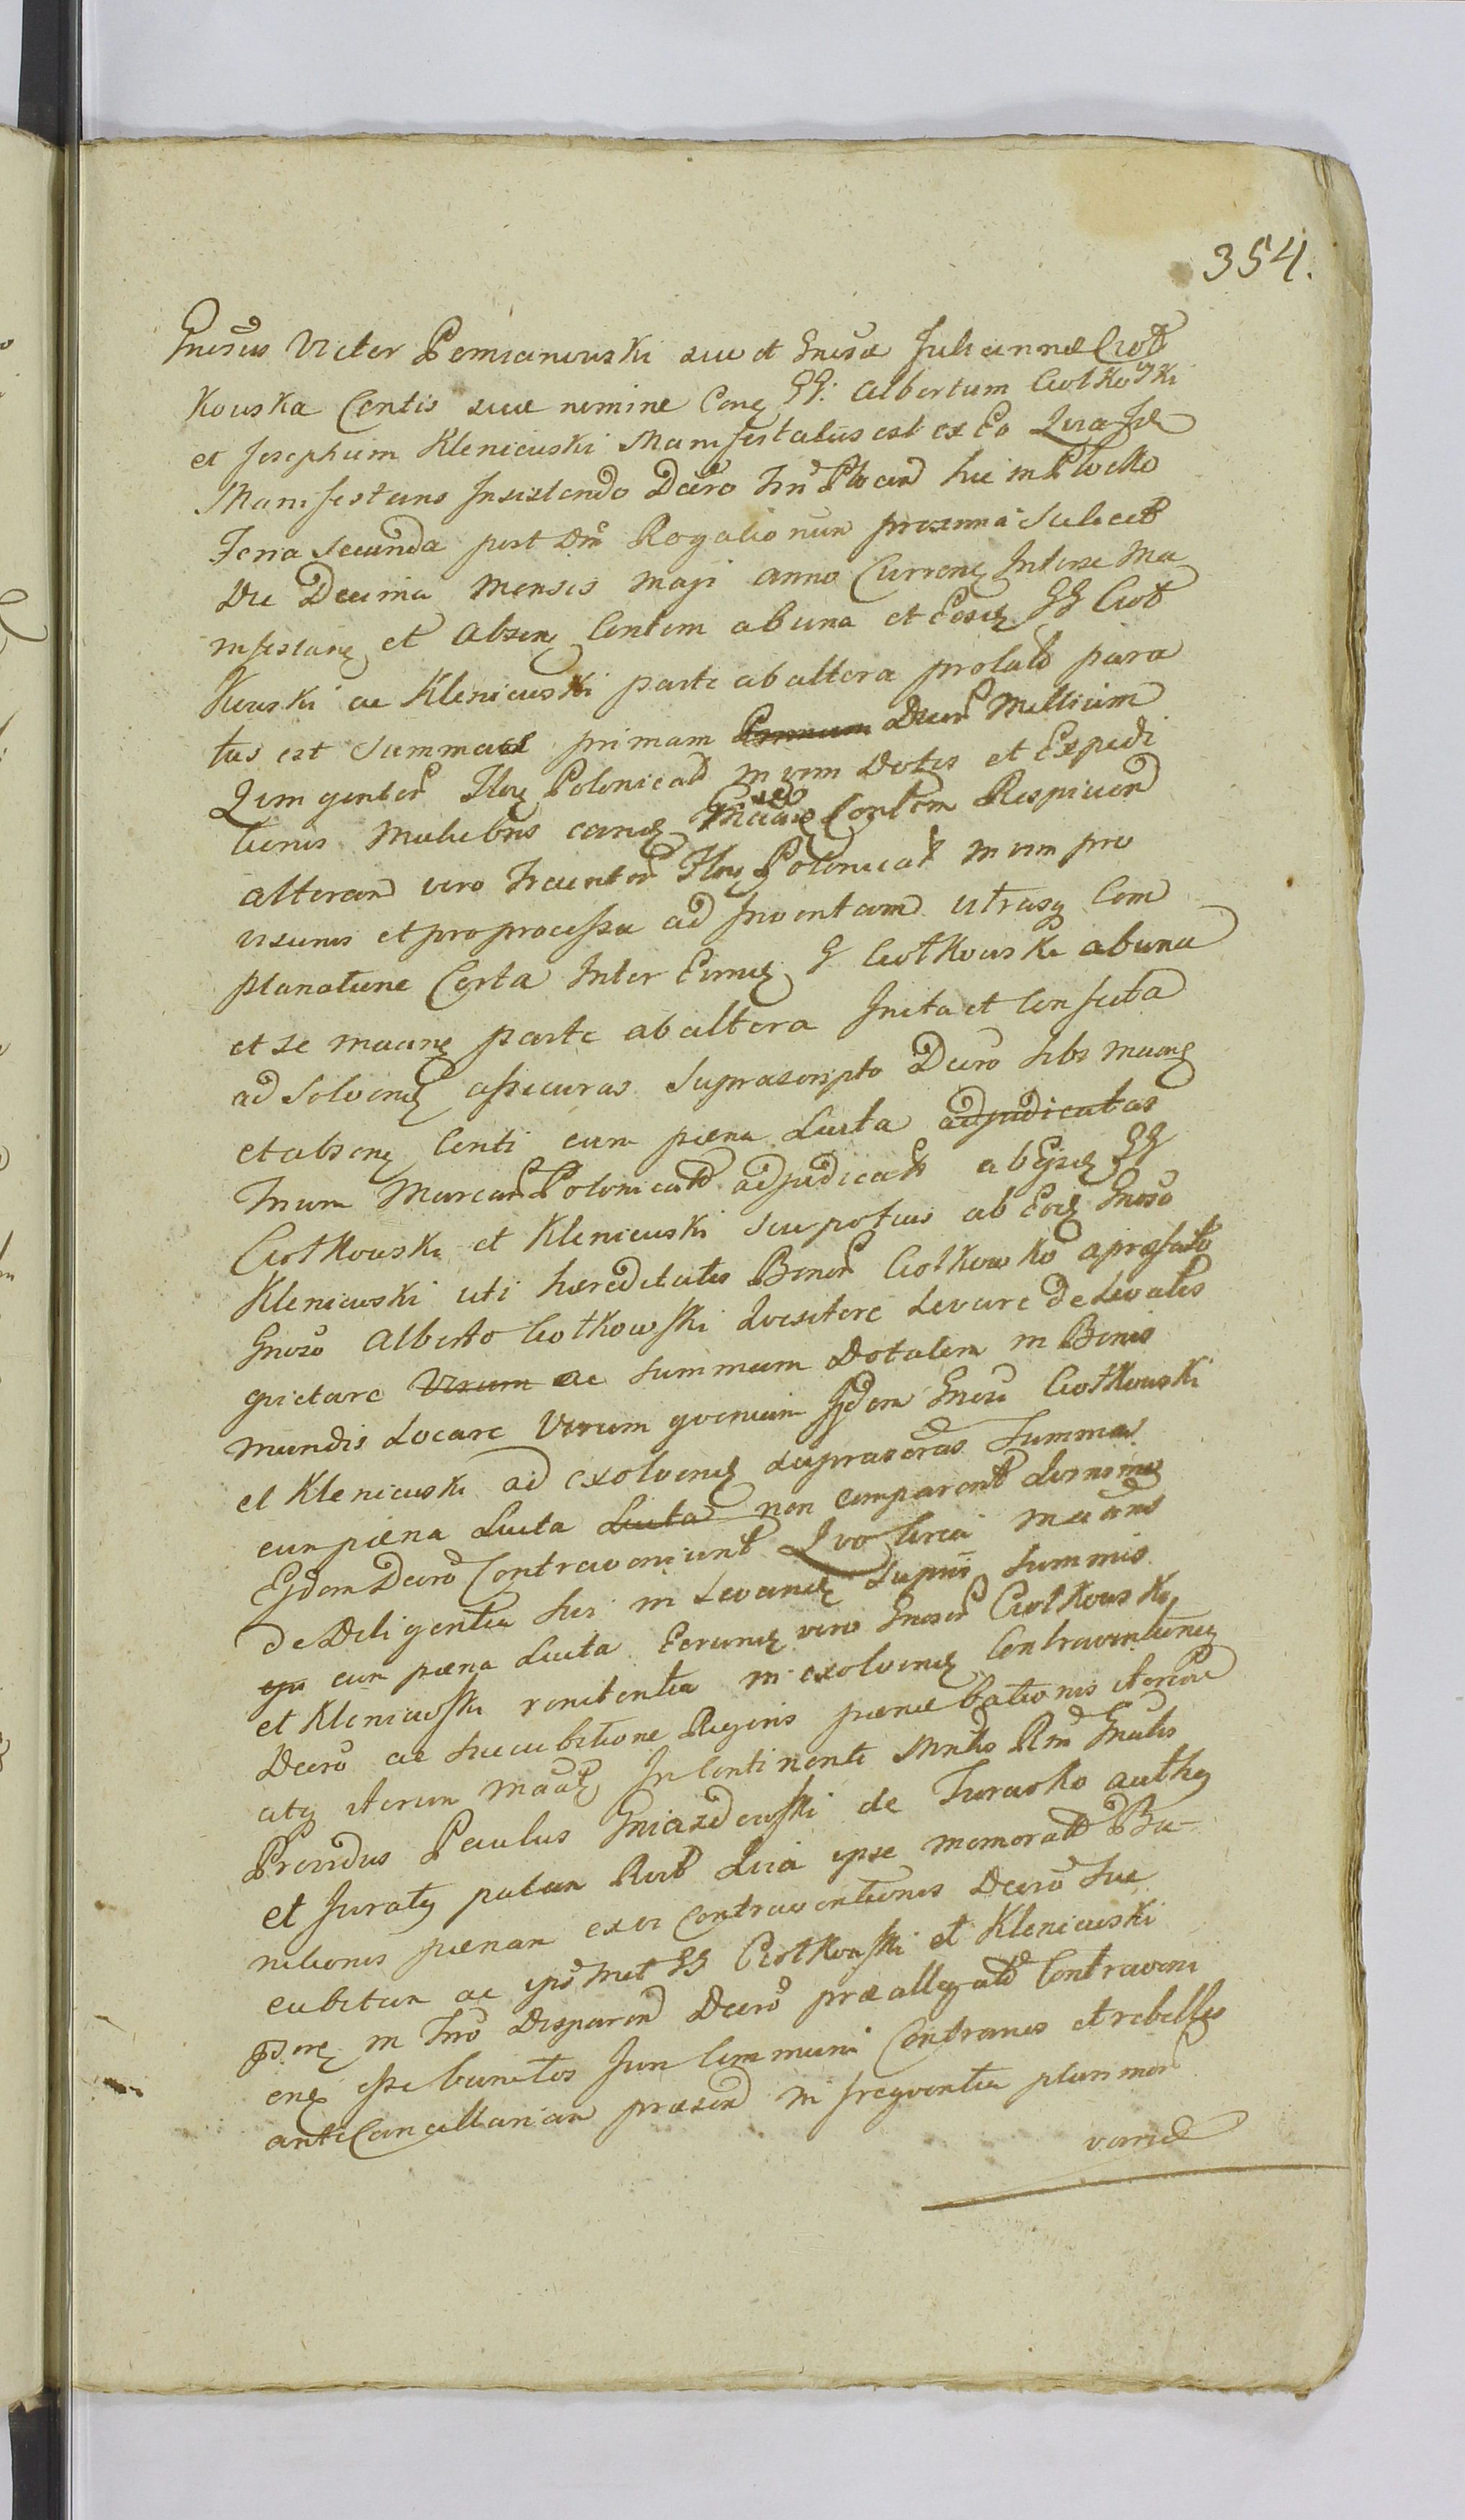 354.
Gnesus Victor Pomianowski suo et Gnesæ Juliannæ Ciot
kowska Contis suæ nomine Conq GG: Albertum Ciotkowski
et Josephum Kleniewski Manifestatus est ex Eo Quia Ide
Manifestans Insistendo Decro Trn Plocen hic in Plocko
Feria Secunda post Dm Rogationum proxima Scilicet
Die Decima Mensis Maji anno Curren Inter se Ma
nifestanq et Absenq Contem ab una et Eosdq GG Ciot
kowski ac Kleniewski parte ab altera prolato para
tus est Summas primam Duor Millium
Quingentor Flor Polonicat in vim Dotis et Expedi
tionis Muliebris eandq Contem Respicien
alteram vero Trecentor Flor Polonicat in vim pro
visionis et pro processu ad Inventam utrasq Com
planatione Certa Inter Eundq G Ciotkowski ab una
et se maanq parte ab altera Inita et Confecta
ad Solvendq assecuras Suprascripto Decro sibi maanq
et absenq Conti cum pæna Lucta adjudicatas
Trium Marcar Polonicat adjudicat ab Eisdq GG
Ciotkowski et Kleniewski seu potius ab Eodq Gneso
Kleniewski uti hæreditatis Bonor Ciotkowko a præfato
Gneso Alberto Ciotkowski Quesitore Levare de Levatis
quietare Virum ac Summam Dotalem in Bonis
mundis Locare Verum quoniam Ijdem Gnesi Ciotkowski
et Kleniewski ad exolvendq suprascras Summas
cum pæna Lucta Lucta non comparent
Ejdem Decro Contraveniunt Quo circa maans
de Diligentia sui in Levandq Supiis Summis
cum pæna Lucta Eorundq vero Gnesor Ciotkowski
et Kleniewski renitentia in exolvendq Contraventioneq
Decro ac succubitione Rigoris pænæ bationis iterum
atq iterum maatq In Continenti Mntrlis Rni Gnalis
Providus Paulus Gniazdowski de Turowko authq
et Juratq palam Rect Quia ipse memorat Ba-
nitionis pænam ex vi Contraventionis Decro Suc
cubitum ac ipsosmet GG Ciotkowski et Kleniewski
in Trro Disparen Decro præallegato Contraveni
enq esse banitos Juri Communi Contrarios et rebelles
ante Cancellariam præsen in frequentia plurimor
variæ